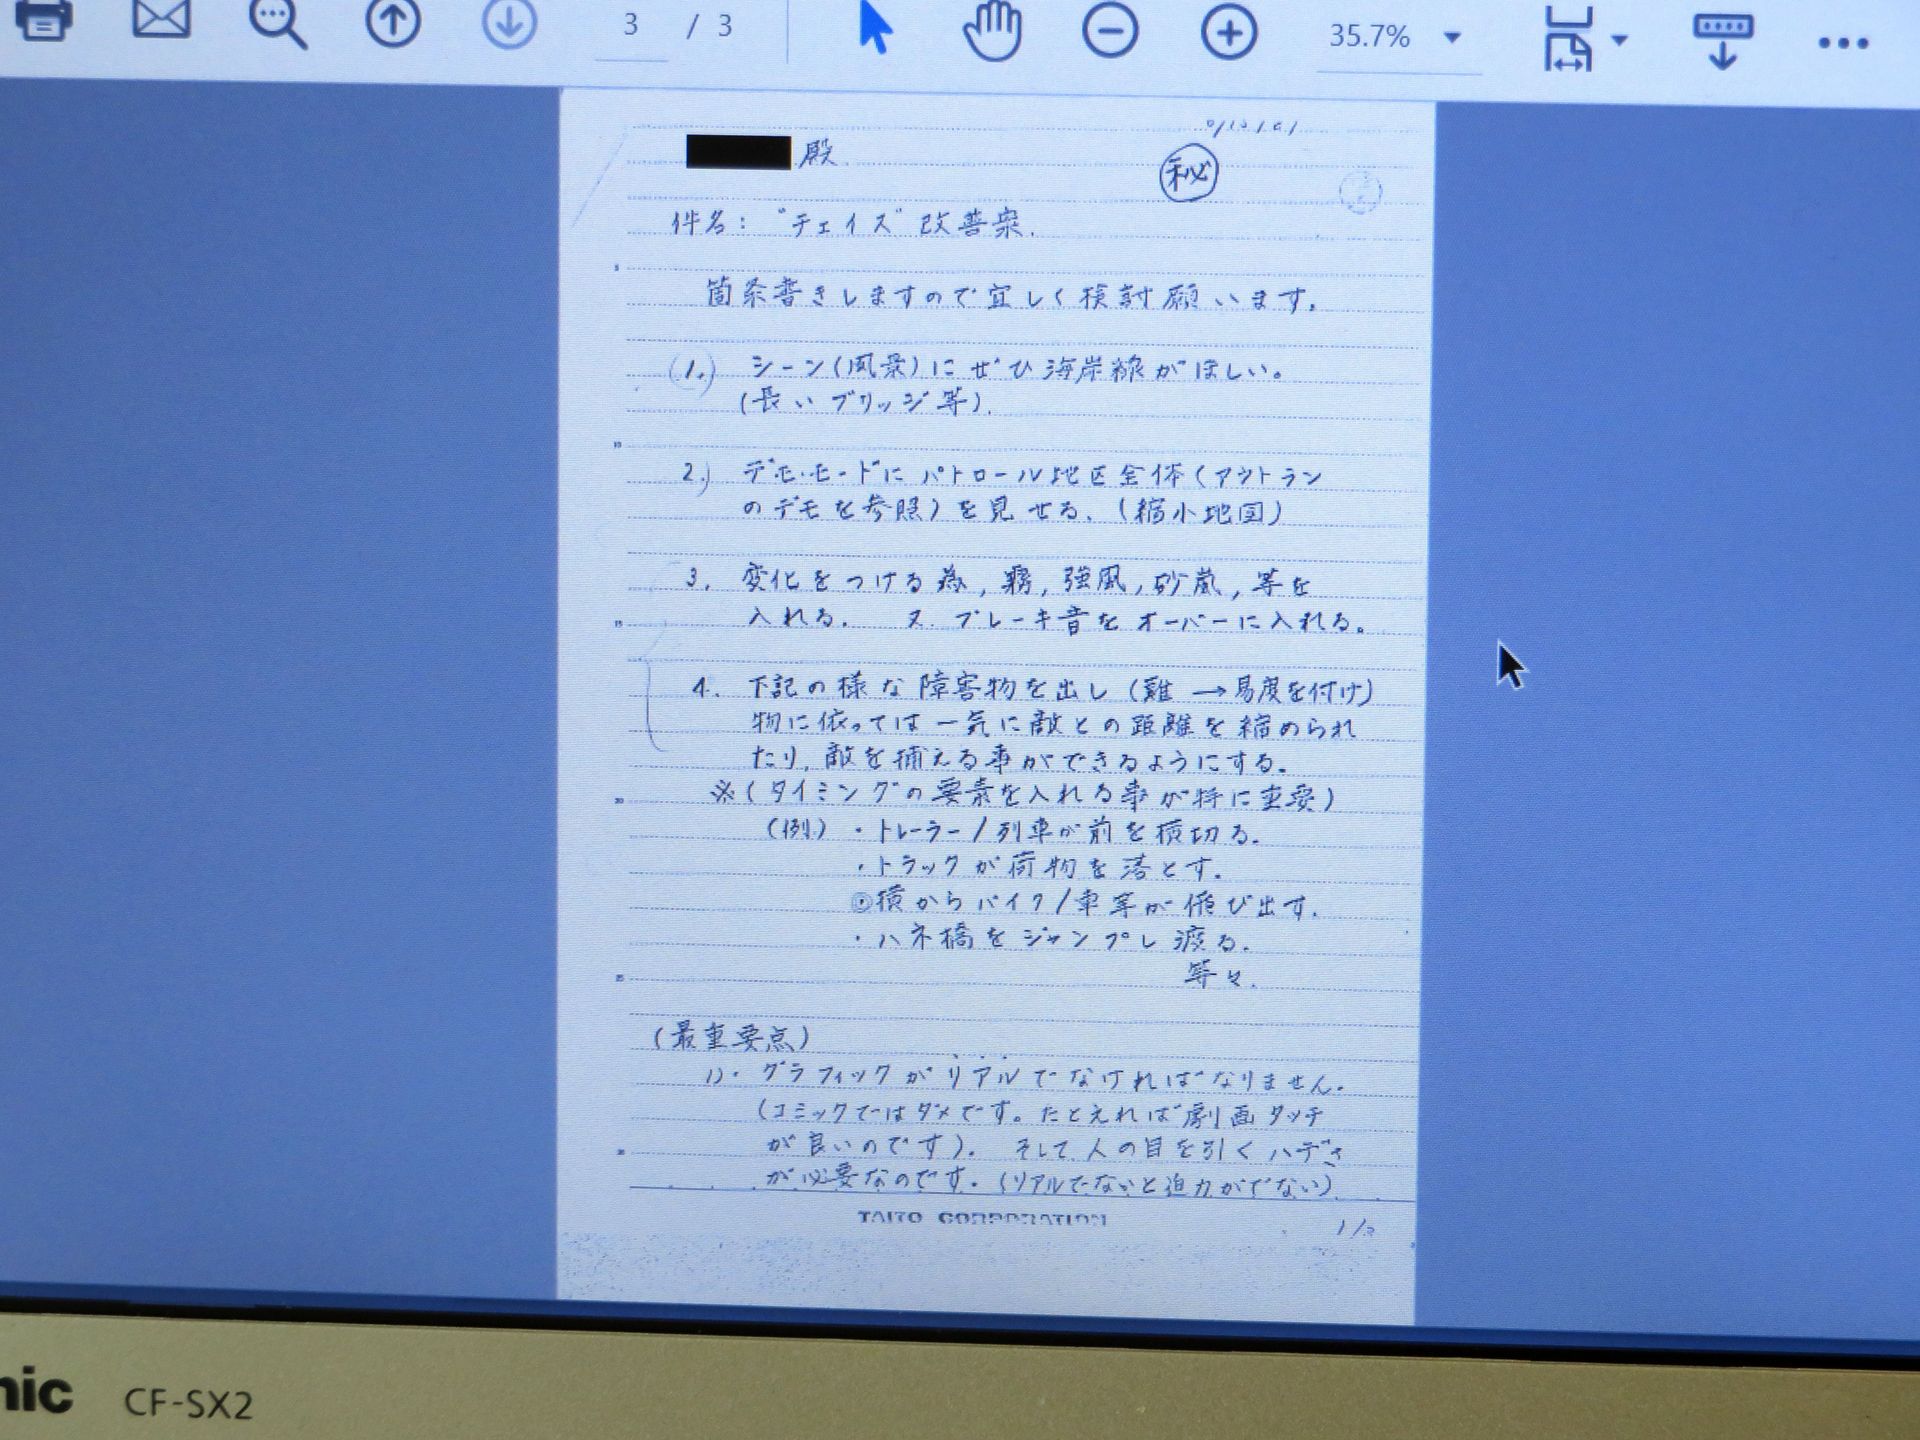 3 / 3
35.7%
殿
秘
件名: "チェイズ" 改善案.
箇条書きしますので宜しく検討願います.
(1.) シーン(風景)にぜひ海岸線がほしい。
(長いブリッジ等).
2.) デモ・モードにパトロール地区全体(アウトラン
のデモを参照)を見せる. (縮小地図)
3. 変化をつける為, 霧, 強風, 砂嵐, 等を
入れる. 又 ブレーキ音をオーバーに入れる。
4. 下記の様な障害物を出し(難→易度を付け)
物に依っては一気に敵との距離を縮められ
たり, 敵を捕える事ができるようにする.
※(タイミングの要素を入れる事が特に重要)
(例) ・トレーラー/列車が前を横切る.
・トラックが荷物を落とす.
・横からバイク/車等が飛び出す.
・ハネ橋をジャンプし渡る.
等々.
(最重要点)
1)・グラフィックがリアルでなければなりません.
(コミックではダメです。たとえれば劇画タッチ
が良いのです). そして人の目を引くハデさ
が必要なのです. (リアルでないと迫力がでない)
TAITO CORPORATION
nic CF-SX2